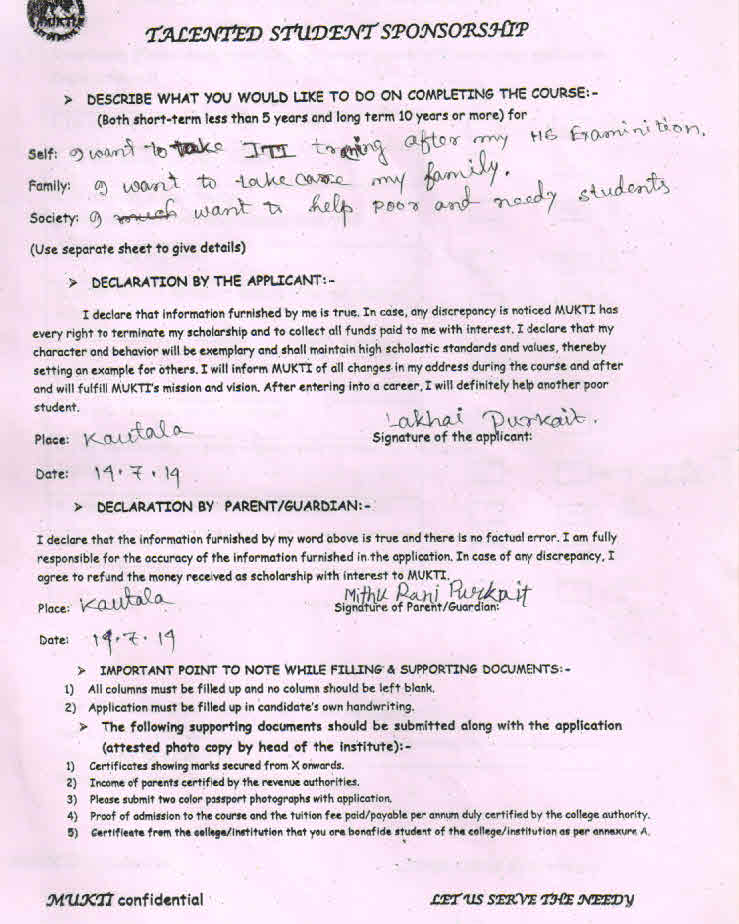 MUKTI
TALENTED STUDENT SPONSORSHIP
➤ DESCRIBE WHAT YOU WOULD LIKE TO DO ON COMPLETING THE COURSE:-
(Both short-term less than 5 years and long term 10 years or more) for
Self: I want to take ITI traning after my HS Examinition.
Family: I want to take care my family.
Society: I want to help poor and needy students
(Use separate sheet to give details)
➤ DECLARATION BY THE APPLICANT:-
I declare that information furnished by me is true. In case, any discrepancy is noticed MUKTI has
every right to terminate my scholarship and to collect all funds paid to me with interest. I declare that my
character and behavior will be exemplary and shall maintain high scholastic standards and values, thereby
setting an example for others. I will inform MUKTI of all changes in my address during the course and after
and will fulfill MUKTI's mission and vision. After entering into a career, I will definitely help another poor
student.
Place: Kautala Lakhai Purkait.
Signature of the applicant:
Date: 19.7.19
➤ DECLARATION BY PARENT/GUARDIAN:-
I declare that the information furnished by my word above is true and there is no factual error. I am fully
responsible for the accuracy of the information furnished in the application. In case of any discrepancy, I
agree to refund the money received as scholarship with interest to MUKTI.
Place: Kautala Mithu Rani Purkait
Signature of Parent/Guardian:
Date: 19.7.19
➤ IMPORTANT POINT TO NOTE WHILE FILLING & SUPPORTING DOCUMENTS:-
1) All columns must be filled up and no column should be left blank.
2) Application must be filled up in candidate's own handwriting.
➤ The following supporting documents should be submitted along with the application
(attested photo copy by head of the institute):-
1) Certificates showing marks secured from X onwards.
2) Income of parents certified by the revenue authorities.
3) Please submit two color passport photographs with application.
4) Proof of admission to the course and the tuition fee paid/payable per annum duly certified by the college authority.
5) Certificate from the college/institution that you are bonafide student of the college/institution as per annexure A.
MUKTI confidential LET US SERVE THE NEEDY